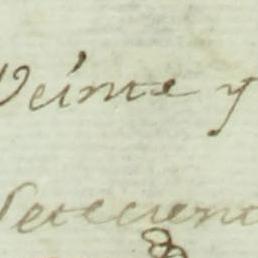 Veinte y
Setecient